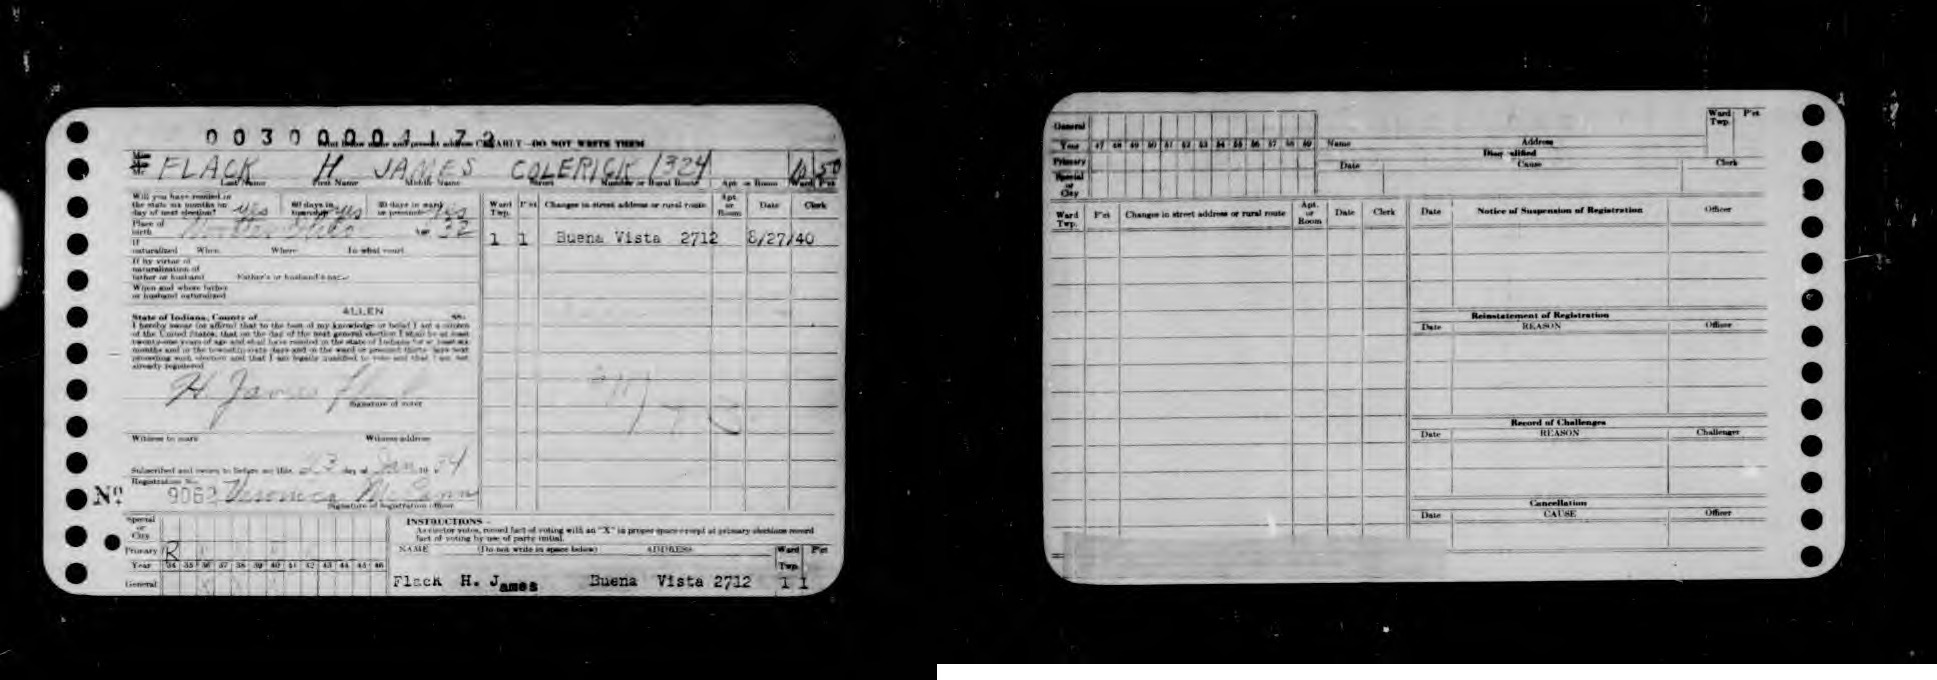 0030000417
Print below name and present address CLEARLY—DO NOT WRITE THEM
FLACK H JAMES COLERICK 1324 10 50
Last Name First Name Middle Name Street Number or Rural Route Apt. or Room Ward P'ct
Will you have resided in
the state six months on 60 days in 30 days in ward
day of next election? yes township yes or precinct yes
Place of
birth Age 32
If
naturalized When Where In what court
If by virtue of
naturalization of
father or husband Father's or husband's name
When and where father
or husband naturalized
State of Indiana, County of ALLEN ss:
I hereby swear (or affirm) that to the best of my knowledge or belief I am a citizen
of the United States; that on the day of the next general election I shall be at least
twenty-one years of age and shall have resided in the state of Indiana for at least six
months and in the township sixty days and in the ward or precinct thirty days next
preceding such election and that I am legally qualified to vote and that I am not
already registered
H James Flack
Signature of voter
Witness to mark Witness address
Subscribed and sworn to before me this 23 day of Jan 19 34
Registration No.
No 9062 Veronica
Signature of Registration officer
Ward Twp. P'ct Changes in street address or rural route Apt. or Room Date Clerk
1 1 Buena Vista 2712 8/27/40
Special
or
City
Primary R
Year 34 35 36 37 38 39 40 41 42 43 44 45 46
General
INSTRUCTIONS—
As elector votes, record fact of voting with an "X" in proper space except at primary elections record
fact of voting by use of party initial.
NAME (Do not write in space below) ADDRESS Ward Twp. P'ct
Flack H. James Buena Vista 2712 1 1
General
Year 47 48 49 50 51 52 53 54 55 56 57 58 59
Primary
Special
or
City
Name Address Ward Twp. P'ct
Disqualified
Date Cause Clerk
Ward Twp. P'ct Changes in street address or rural route Apt. or Room Date Clerk
Date Notice of Suspension of Registration Officer
Reinstatement of Registration
Date REASON Officer
Record of Challenges
Date REASON Challenger
Cancellation
Date CAUSE Officer